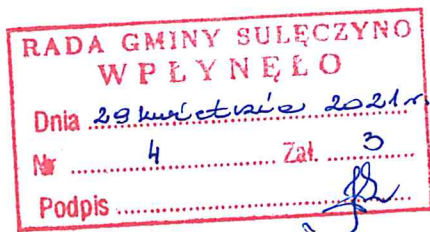 RADA GMINY SULĘCZYNO
WPŁYNĘŁO
Dnia 29 kwietnia 2021 r.
Nr 4 Zał. 3
Podpis